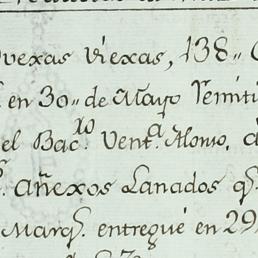 ovexas viexas, 138"
en 30" de Mayo Remiti
el Bac.lo Vent.a Alonso,
añexos Lanados q.s
Marq.s entregué en 29